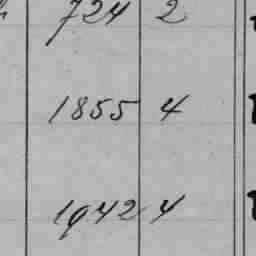 724 2
1855 4
1942 4